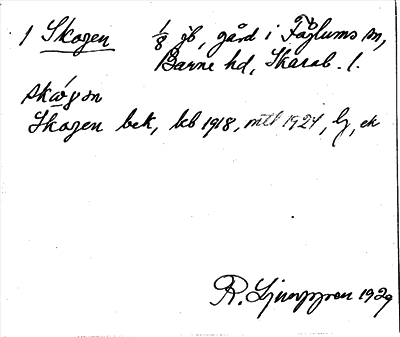 1 Skogen 1/8 jb, gård i Fåglums sn,
Barne hd, Skarab. l.
skógən
Skogen bek, kb 1918, mtl 1924, lj, ek
R. Ljunggren 1929